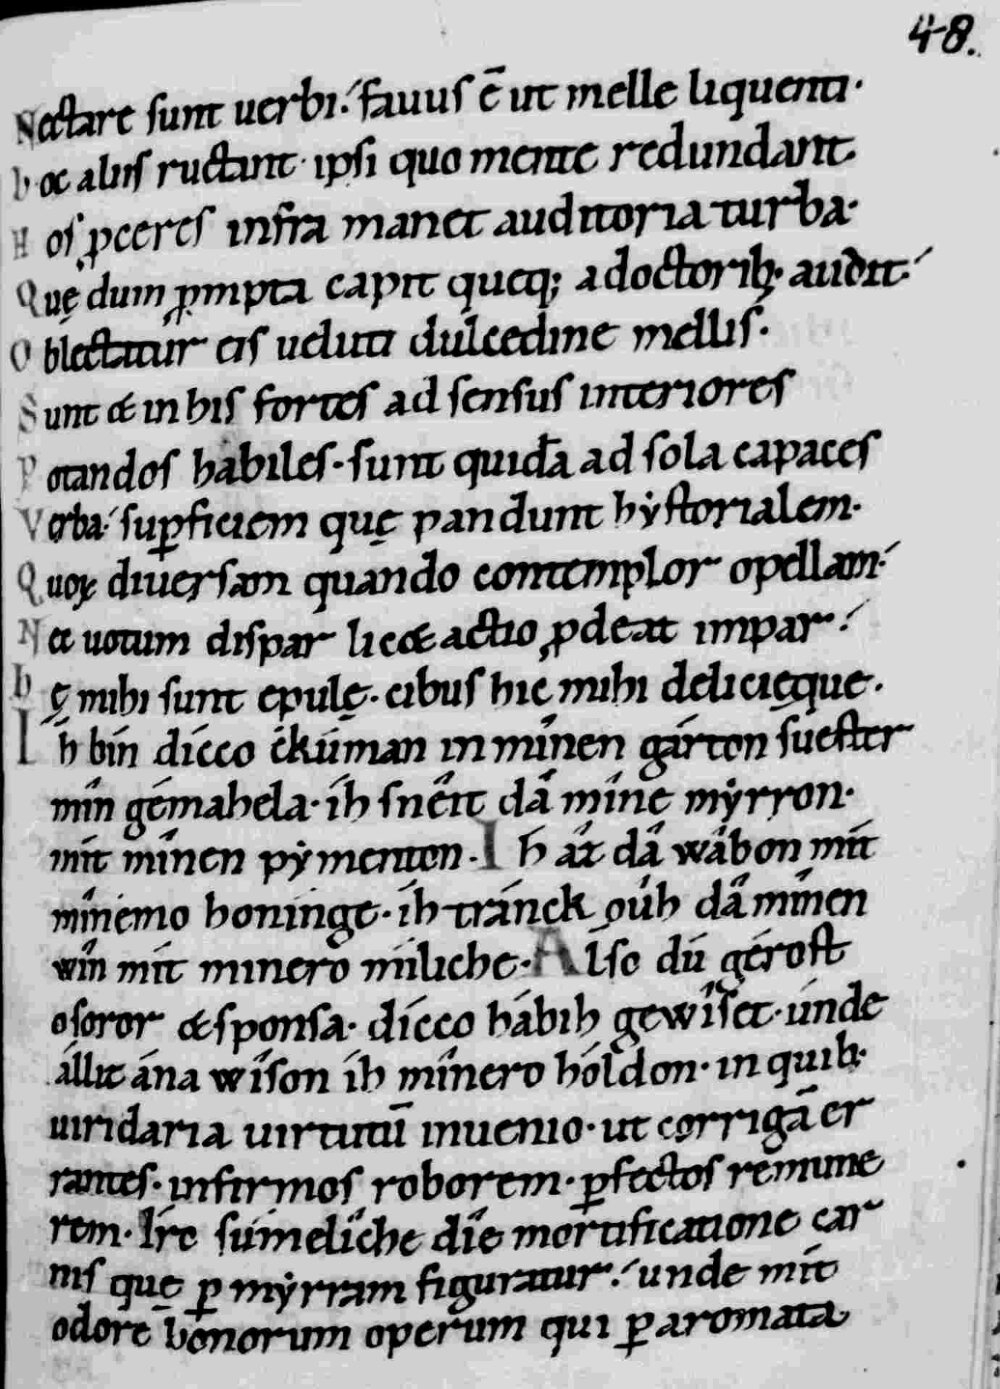 48.
Nectare sunt uerbi. fauus ē ut melle liquenti.
hoc aliis ructant. ipsi quo mente redundant.
Hos ꝓceres infra manet auditoria turba.
Quę dum ꝓmpta capit queq; a doctorib;. audit.
Oblectatur eis ueluti dulcedine mellis.
Sunt & in his fortes ad sensus interiores
Potandos habiles. sunt quidā ad sola capaces
Verba. suꝑficiem quę pandunt hẏstorialem.
Quoꝝ diuersam quando contemplor opellam.
Nec uotum dispar lic& actio ꝓdeat impar.
hę mihi sunt epulę. cibus hic mihi delicięque.
Ih bín dícco ékúman in mînen gárton súester
mîn gémahela. íh snêit dâ mîne mẏrron.
mít mînen pẏmenton. Ih áz dâ wâbon mít
mînemo honinge. íh tránck óuh dâ mînen
wîn mít mînero míliche. Also dú gérost
o soror & sponsa. dícco hábih gewîset. únde
állic ána wîson íh mînero hóldon. in quib;.
uiridaria uirtutū inuenio. ut corrigā er
rantes. infirmos roborem. ꝑfectos remune
rem. Ire súmelîche dîe mortificatione car
nis quę ꝑ mẏrram figuratur. unde mít
odore bonorum operum qui ꝑ aromata